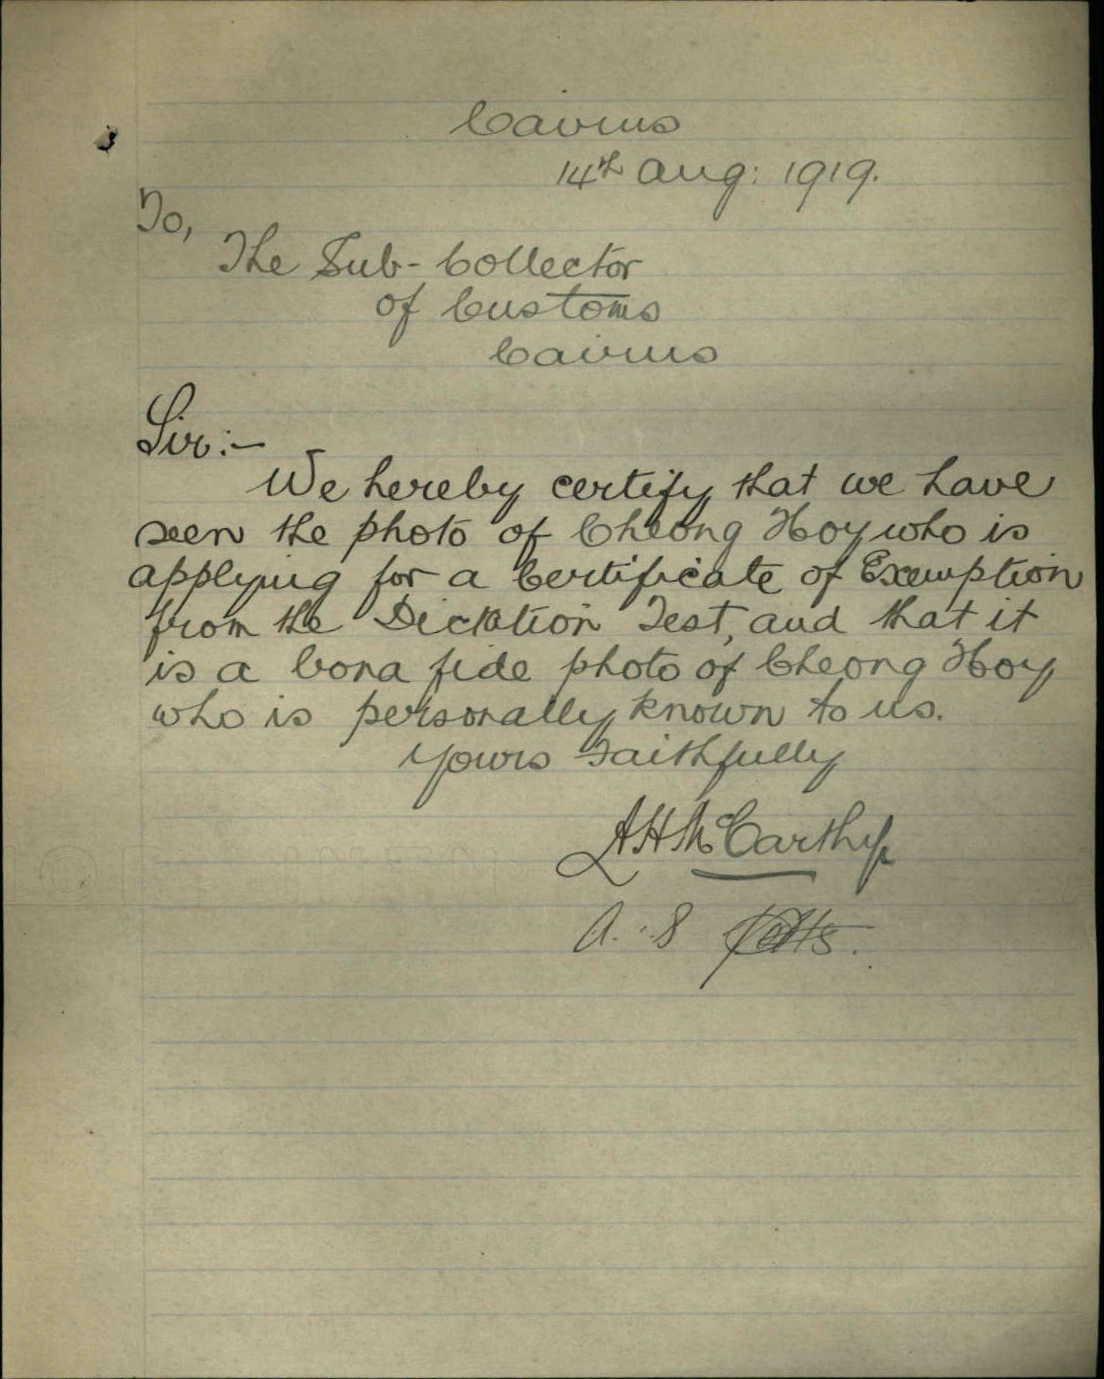 Cairns
14th Aug: 1919.
To,
The Sub-Collector
of Customs
Cairns
Sir:-
We hereby certify that we have
seen the photo of Cheong Hoy who is
applying for a Certificate of Exemption
from the Dictation Test, and that it
is a bona fide photo of Cheong Hoy
who is personally known to us.
Yours Faithfully
A H McCarthy
A. S